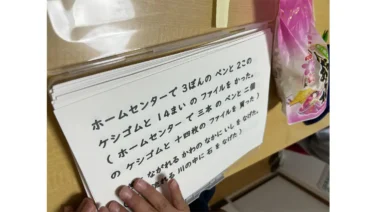 ホームセンターで 3ぼんの ペンと 2この
ケシゴムと 14まい の ファイルを かった。
( ホームセンター で 三本 の ペンと 二個
の ケシゴムと 十四枚の ファイルを 買った )
ながれる かわの なかに いしを なげた。
れる 川の中に 石 を なげた )